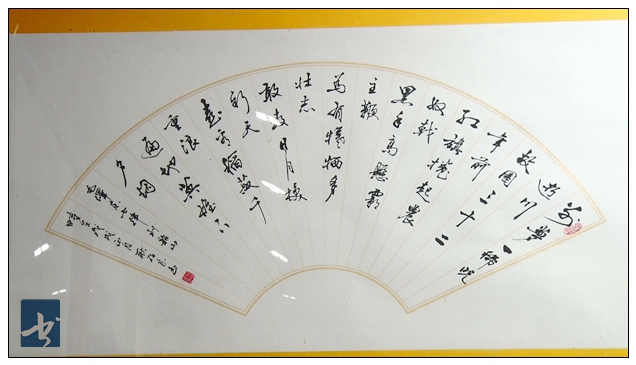 别夢依稀咒
逝川
故園三十二
年前
红旗捲起農
奴戟
黑手高懸霸
主鞭
為有犧牲多
壮志
敢教日月換
新天
喜看稻菽千
重浪
遍地英雄下
夕烟
七律到韶山
戊戌正月
书